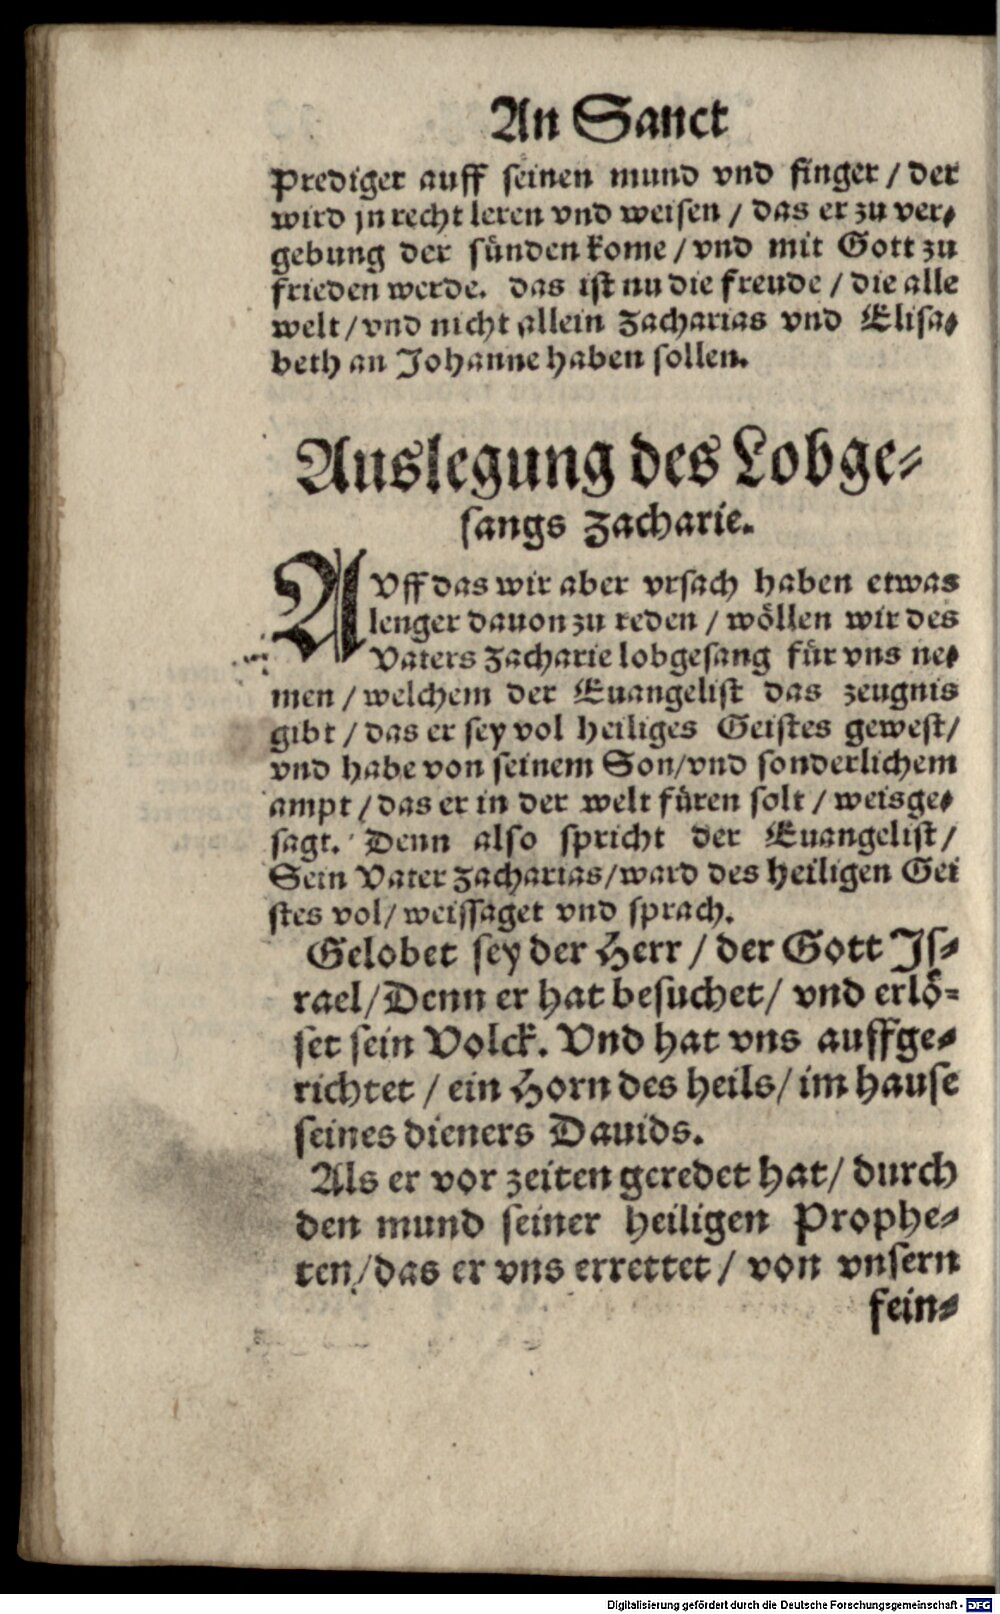 An Sanct
Prediger auff seinen mund vnd finger / der
wird jn recht leren vnd weisen / das er zu ver⸗
gebung der sünden kome / vnd mit Gott zu
frieden werde. das ist nu die freude / die alle
welt / vnd nicht allein Zacharias vnd Elisa⸗
beth an Johanne haben sollen.
Auslegung des Lobge⸗
sangs Zacharie.
AVff das wir aber vrsach haben etwas
lenger dauon zu reden / wöllen wir des
Vaters Zacharie lobgesang für vns ne⸗
men / welchem der Euangelist das zeugnis
gibt / das er sey vol heiliges Geistes gewest /
vnd habe von seinem Son / vnd sonderlichem
ampt / das er in der welt füren solt / weisge⸗
sagt. Denn also spricht der Euangelist /
Sein Vater Zacharias / ward des heiligen Gei
stes vol / weissaget vnd sprach.
Gelobet sey der Herr / der Gott Is⸗
rael / Denn er hat besuchet / vnd erlö⸗
set sein Volck. Vnd hat vns auffge⸗
richtet / ein Horn des heils / im hause
seines dieners Dauids.
Als er vor zeiten geredet hat / durch
den mund seiner heiligen Prophe⸗
ten / das er vns errettet / von vnsern
fein⸗
Digitalisierung gefördert durch die Deutsche Forschungsgemeinschaft - DFG